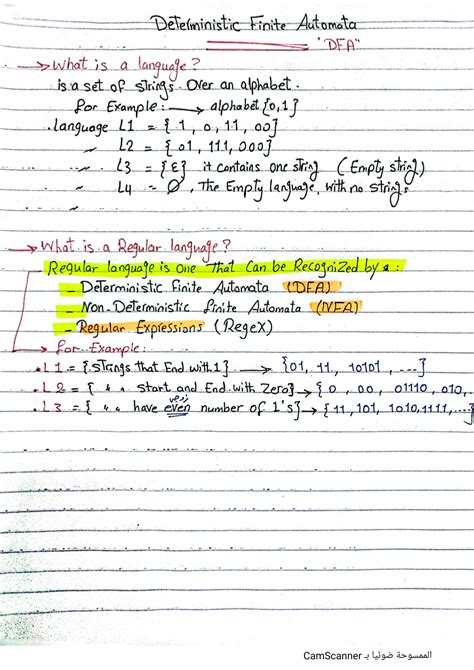 Deterministic Finite Automata
"DFA"
→ What is a language?
is a set of strings over an alphabet.
for Example: → alphabet {0,1}
. language L1 = { 1, 0, 11, 00}
~ L2 = { 01, 111, 000}
~ L3 = {ε} it contains one string (Empty string)
~ L4 = Ø, The Empty language, with no strings
→ What is a Regular language?
Regular language is one That Can be Recognized by a:
- Deterministic finite Automata (DFA)
- Non-Deterministic finite Automata (NFA)
- Regular Expressions (RegeX)
→ for Example:
. L1 = {strings that End with 1} → {01, 11, 10101, ...}
. L2 = { " " start and End with Zero} → {0, 00, 01110, 010, ..
زوجي
. L3 = { " " have even number of 1's} → {11, 101, 1010,1111, ...}
الممسوحة ضوئيا بـ CamScanner